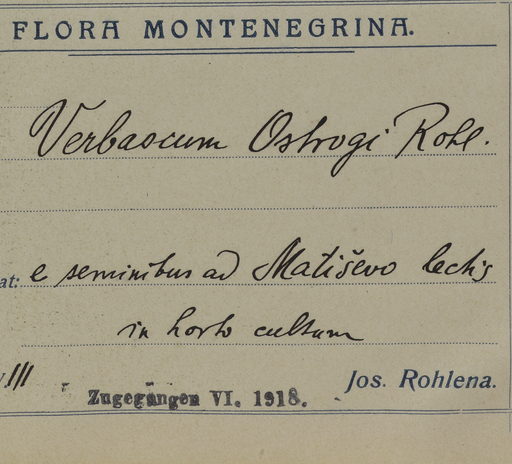 FLORA MONTENEGRINA.
Verbascum Ostrogi Rohl.
at: e seminibus ad Matiševo lectis
in horto cultum
III
Jos. Rohlena.
Zugegangen VI. 1918.